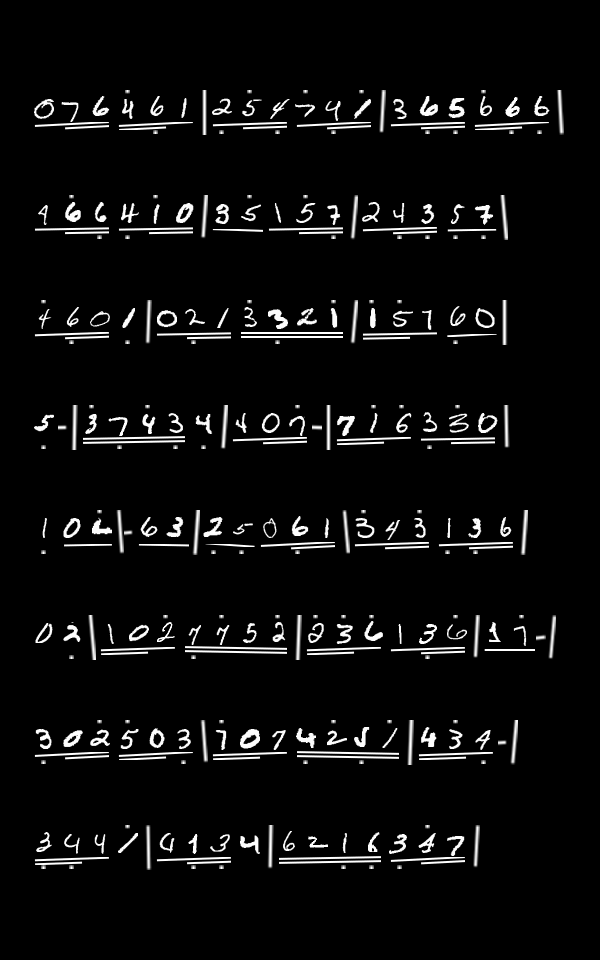 076461|254741|365666
466410|35157|24357
4601|0213321|15760
5-|37434|407-|716330
106|-63|25061|343136
02|1027752|236136|17-
302503|1074251|434-
3441|9134|6216347